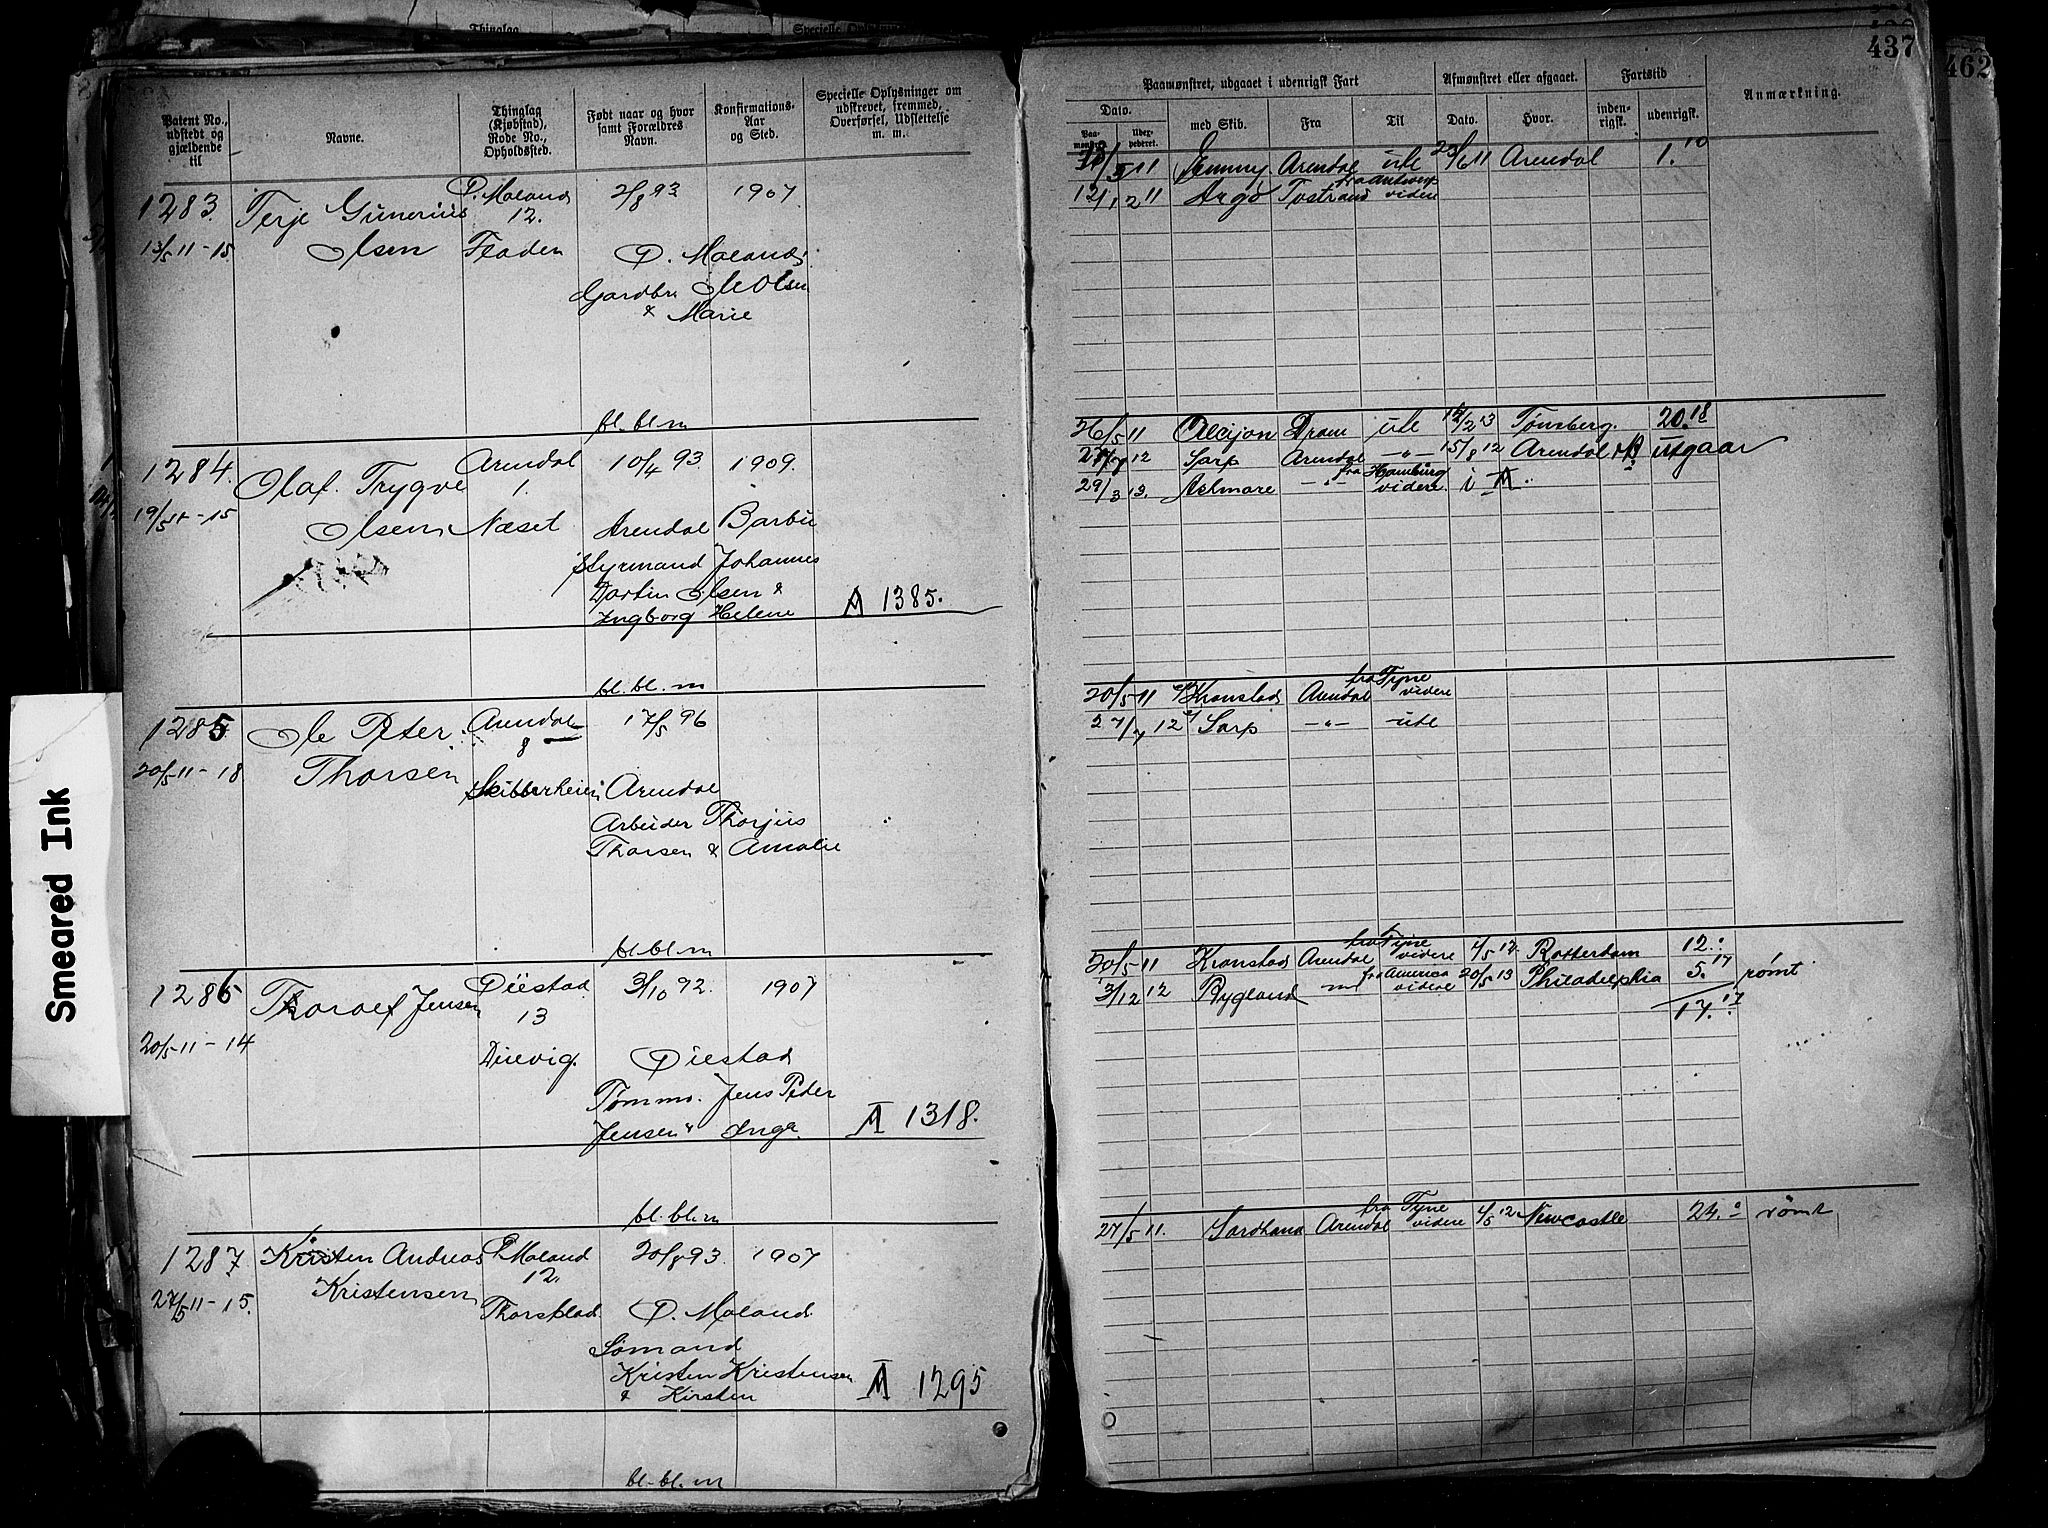 437
462
Thinglag
Specielle Oplysn
Patent No., udstedt og gjældende til
Navne.
Thinglag (Kjøbstad), Rode No., Opholdssted.
Født naar og hvor samt Forældres Navn.
Konfirmations-Aar og Sted.
Specielle Oplysninger om udskrevet, fremmed, Overførsel, Udslettelse m. m.
1283. Terje Gunerius D. Moland 2/8 93 1907
12.
13/5 11-15 Olsen Fladen D. Moland
Gardbr. Ole Olsen
& Marie
bl. bl. m
1284. Olaf Trygve Arendal 10/4 93 1909.
1.
19/5 11-15 Olsen Næset Arendal Barbu
Styrmand Johannes
Olsen &
Ingborg Helene A 1385.
bl. bl. m
1285 Ole Peter Arendal 17/5 96
8
20/5 11-18 Thorsen Skibberheien Arendal
Arbeider Thorjus
Thorsen & Amalie
bl. bl. m
1286 Thoralf Jensen Øiestad 3/10 92. 1907
13
20/5 11-14 Øiestad
Tømmo. Jens Peter
Jensen & Inga. A 1318.
bl. bl. m
1287 Kristen Andreas D. Moland 20/8 93 1907
12.
27/5 11-15. Kristensen D. Moland
Sømand
Kristen Kristensen
& Kirsten A 1295
bl. bl. m
Paamønstret, udgaaet i udenrigsk Fart
Afmønstret eller afgaaet.
Fartstid
Anmærkning.
Dato.
med Skib.
Fra
Til
Dato.
Hvor.
inden-rigsk.
udenrigsk.
Jemmy Arendal ute Arendal 1.10
fra Antwerp
12/12 11 Argo Tvstrand videre
26/5 11 Alcijon Dram ute Tønsberg. 20.18
12 Sarp Arendal -"- 15/8 12 Arendal utgaar
fra Hamburg
29/3 13. Aslmare -"- videre i A.
fra Tyne
20/5 11 Kronstad Arendal videre
27/7 12 Sarp -"- ute
fra Tyne
20/5 11 Kronstad Arendal videre 4/5 12. Rotterdam 12.
fra America
3/12 12 Rygland videre 20/5 13 Philadelphia 5.17 rømt
17.17
fra Tyne
27/5 11. Sardhana Arendal videre 4/5 12 Newcastle 24. rømt
Smeared Ink